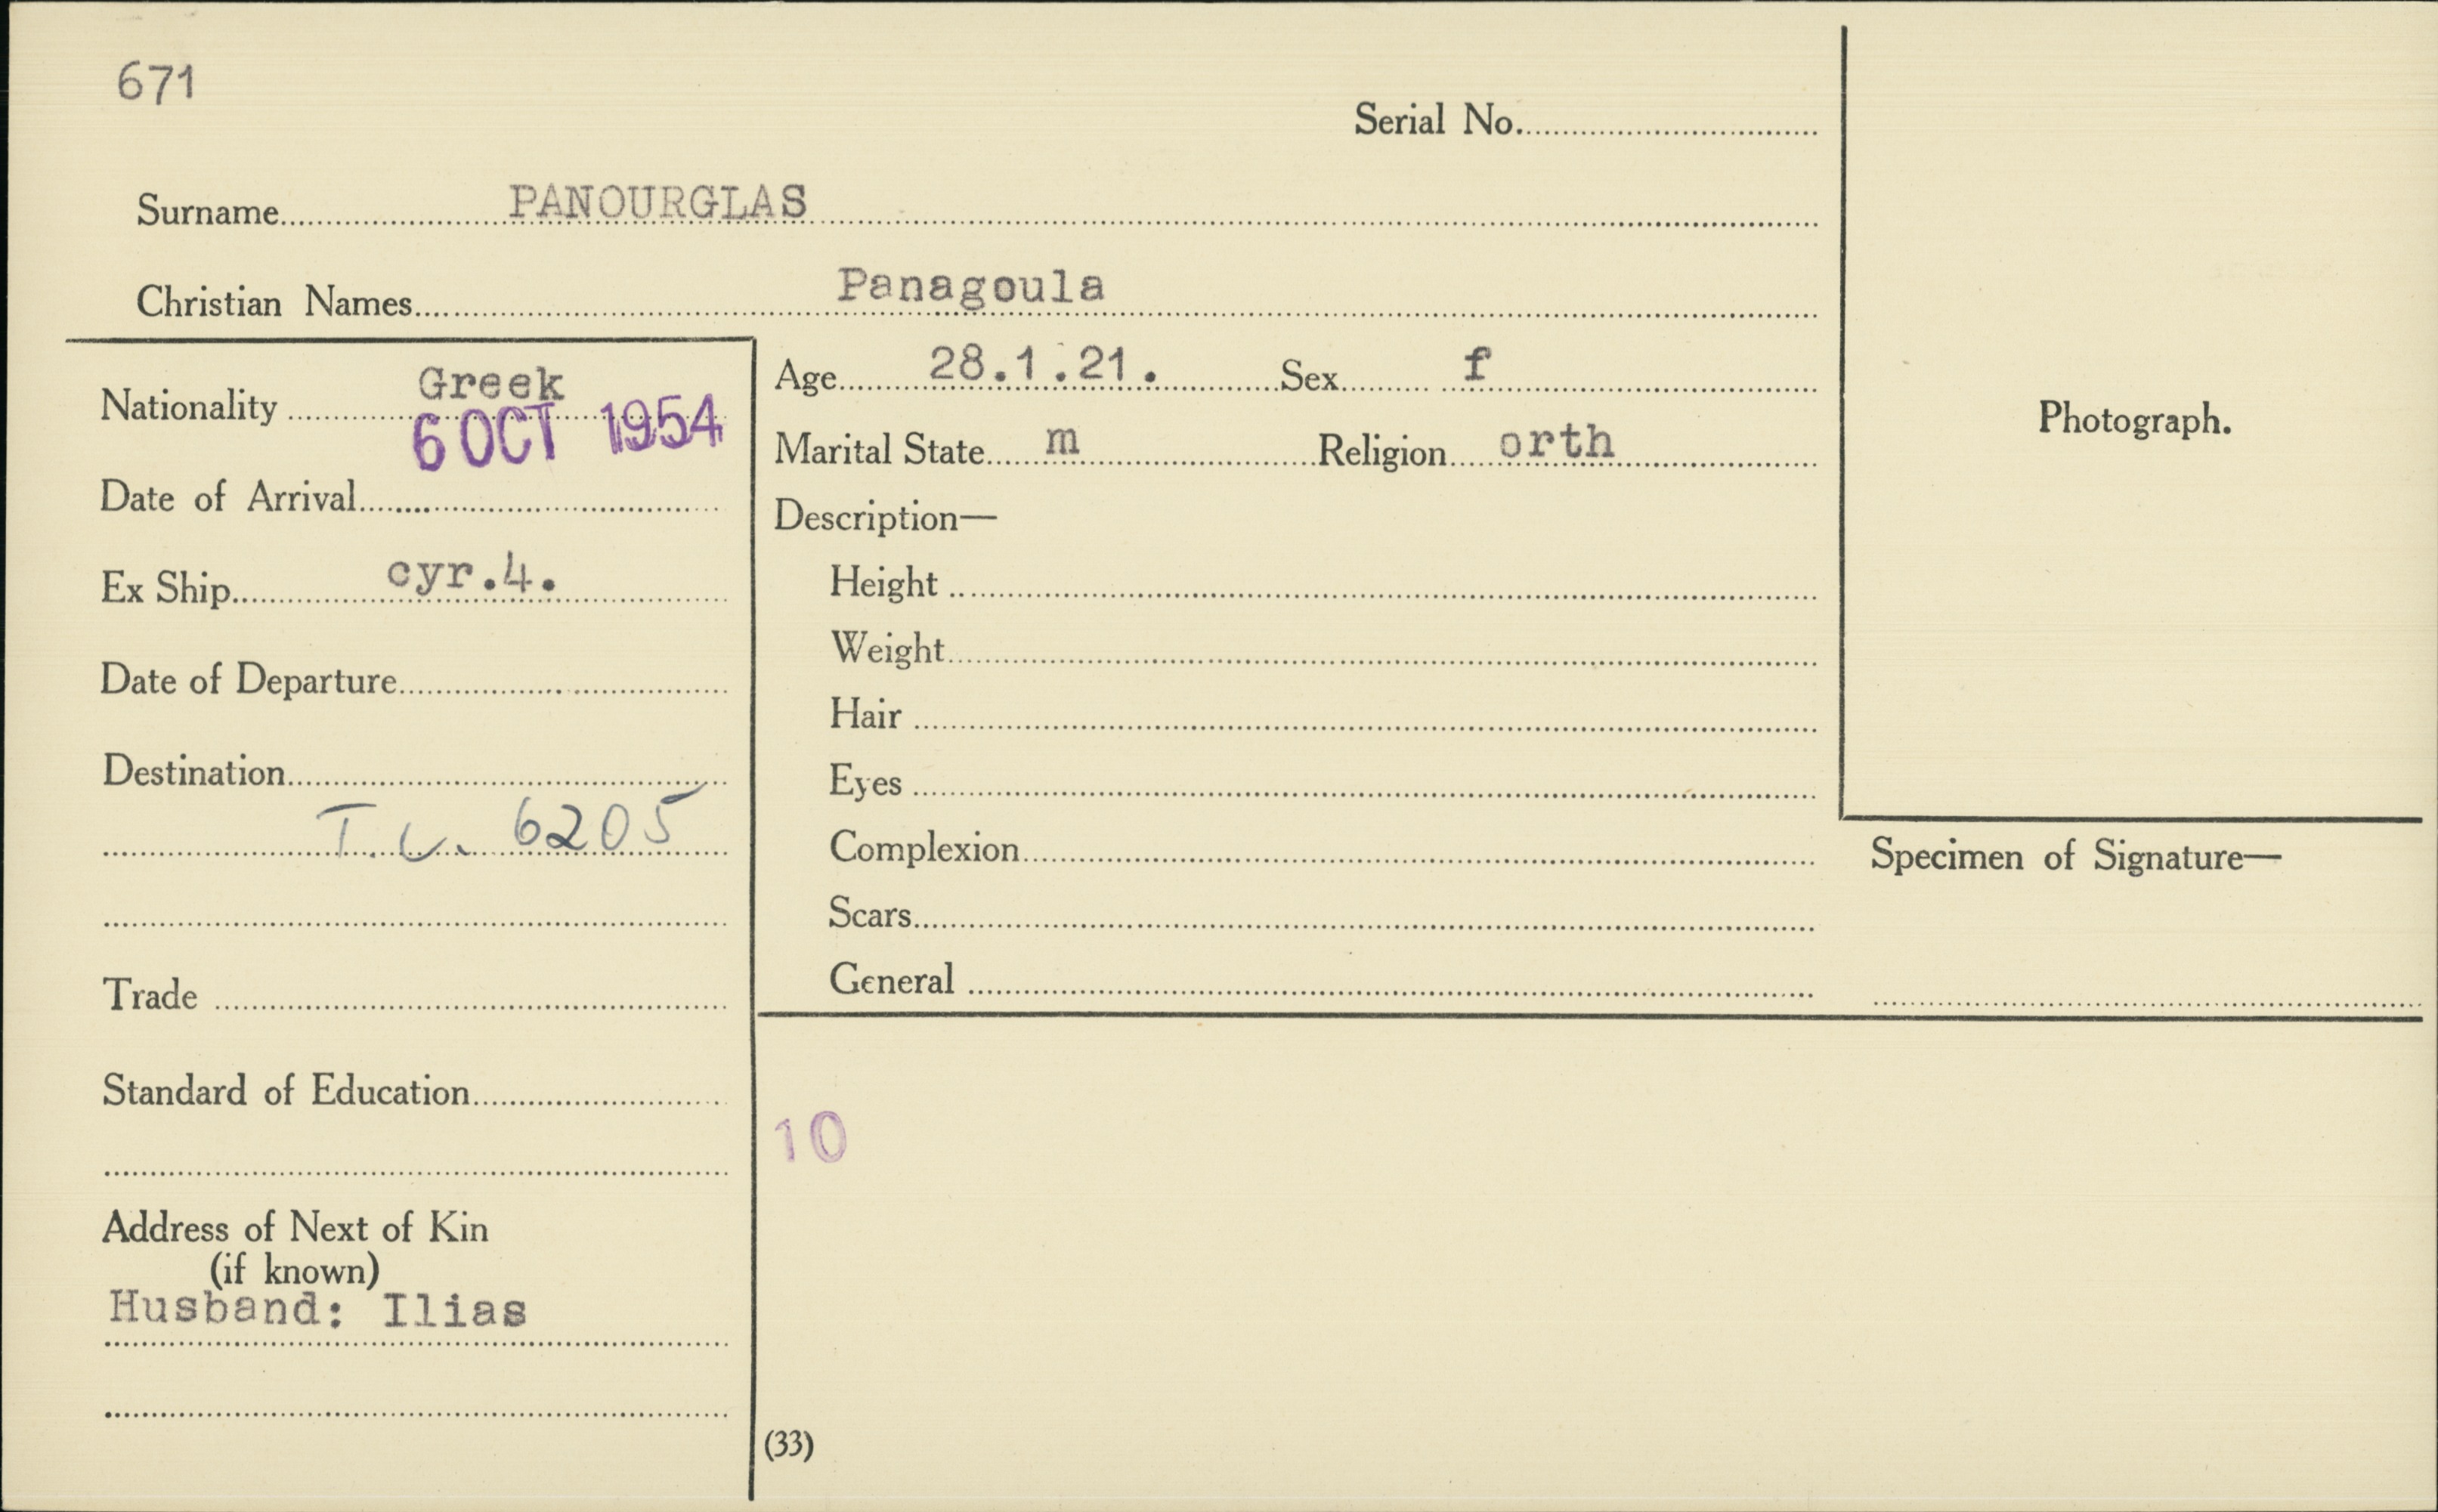 671
Serial No.
Surname PANOURGLAS
Christian Names Panagoula
Nationality Greek
6 OCT 1954
Date of Arrival
Ex Ship cyr.4.
Date of Departure
Destination
T.L. 6205
Trade
Standard of Education
Address of Next of Kin
(if known)
Husband: Ilias
Age 28.1.21. Sex f
Marital State m Religion orth
Description—
Height
Weight
Hair
Eyes
Complexion
Scars
General
10
(33)
Photograph.
Specimen of Signature—